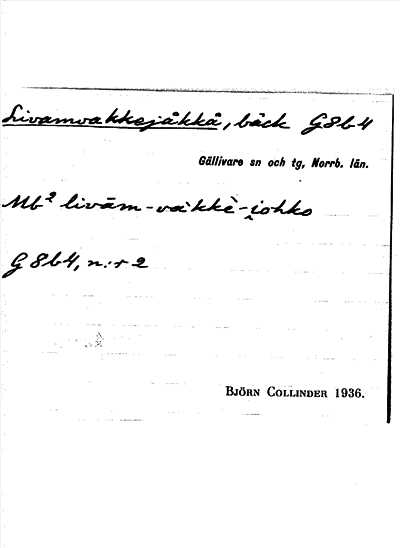 Livamvakkejåkkå, bäck G8b4
Gällivare sn och tg, Norrb. län.
Mb² livām-vàkkè-i̯ohko
G8b4, n:r 2
BJÖRN COLLINDER 1936.